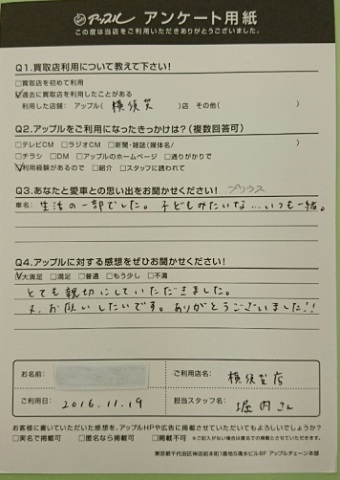 アップル アンケート用紙
この度は当店をご利用いただきありがとうございました。
Q1.買取店利用について教えて下さい!
□買取店を初めて利用
☑過去に買取店を利用したことがある
利用した店舗：アップル( 横須賀 )店 その他( )
Q2.アップルをご利用になったきっかけは?(複数回答可)
□テレビCM □ラジオCM □新聞・雑誌(媒体名/ )
□チラシ □DM □アップルのホームページ □通りがかりで
☑利用経験があるので □紹介 □スタッフに誘われて
Q3.あなたと愛車との思い出をお聞かせください! プリウス
車名: 生活の一部でした。子どもみたいな…いつも一緒。
Q4.アップルに対する感想をぜひお聞かせください!
☑大満足 □満足 □普通 □もう少し □不満
とても親切にしていただきました。
又、お願いしたいです。ありがとうございました!!
お名前:
ご利用店名: 横須賀店
ご利用日: 2016.11.19
担当スタッフ名: 堀内さん
お客様に書いていただいた感想を、アップルHPや広告に掲載させていただいてもよろしいでしょうか?
□実名で掲載可 □匿名なら掲載可 □掲載不可 ※ご記入がない場合は匿名での掲載とさせていただきます。
東京都千代田区神田絵本町1番地5清水ビル6F アップルチェーン本部